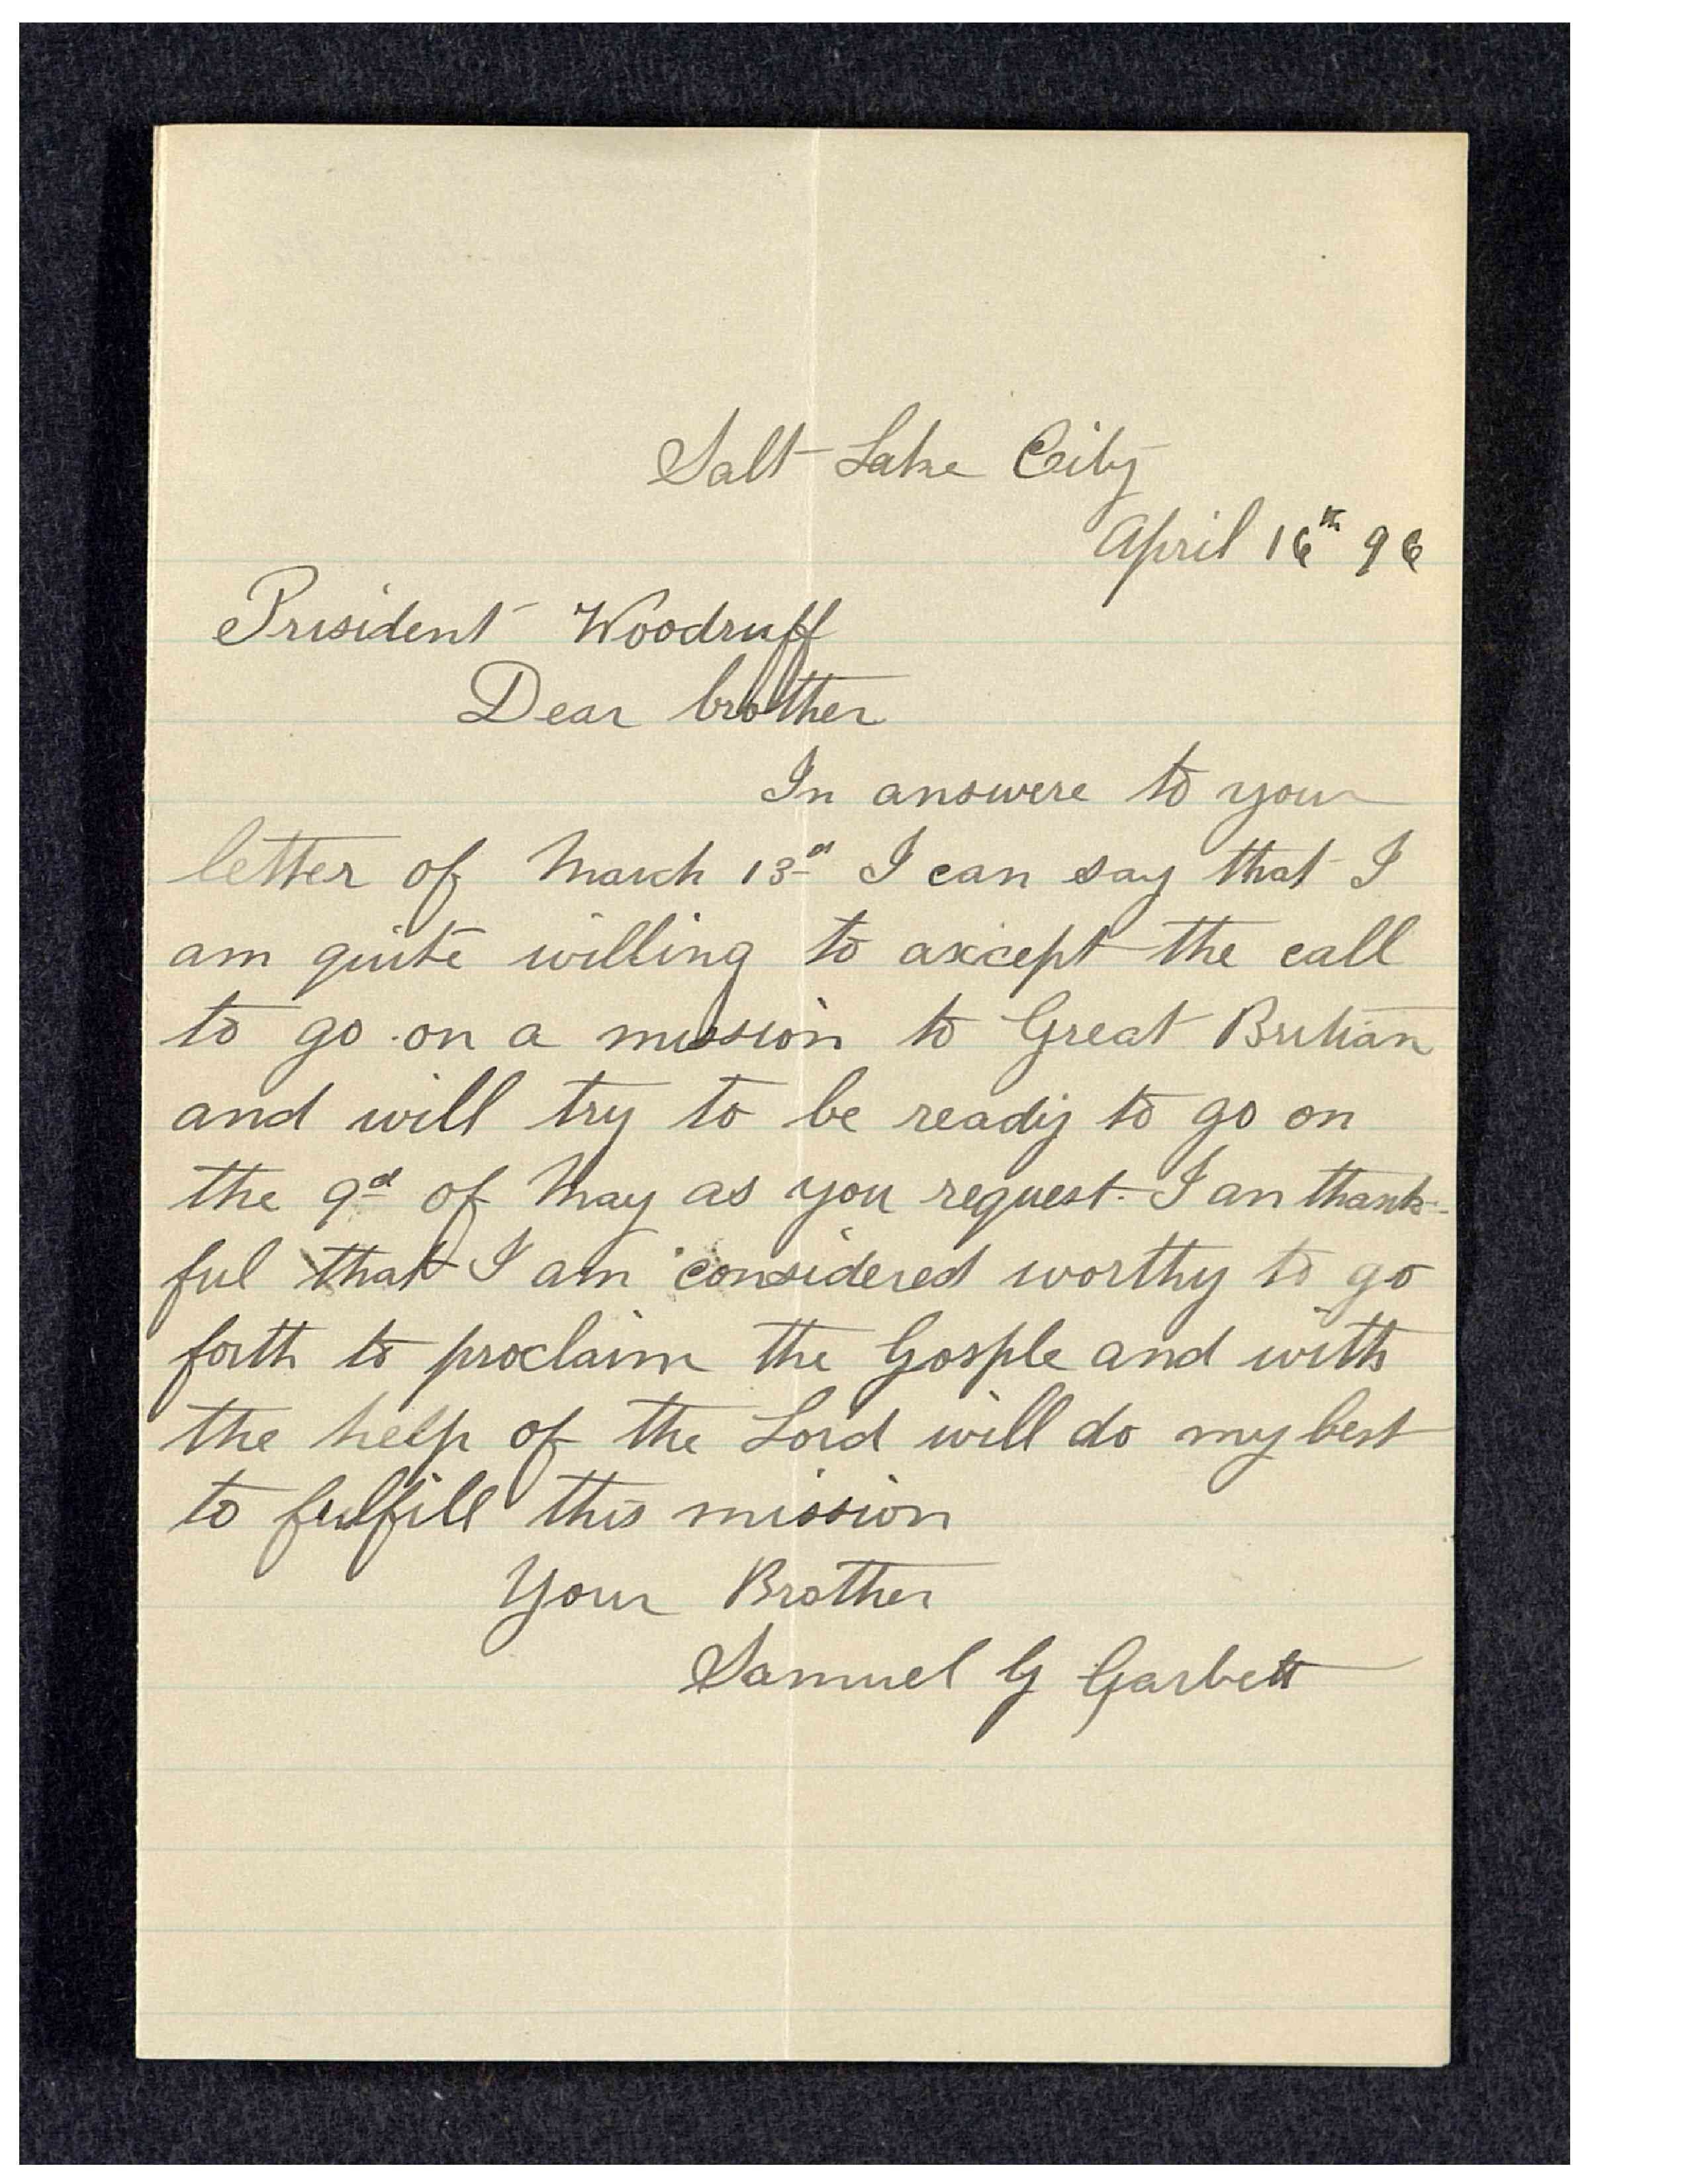 Salt Lake City
April 16th 96
President Woodruff
Dear brother
In answere to your
letter of March 13d I can say that I
am quite willing to axcept the call
to go on a mission to Great Britian
and will try to be ready to go on
the 9d of May as you request. I an thank-
ful that I am considered worthy to go
forth to proclaim the Gosple and with
the help of the Lord will do my best
to fulfill this mission
Your Brother
Samuel G Garbett